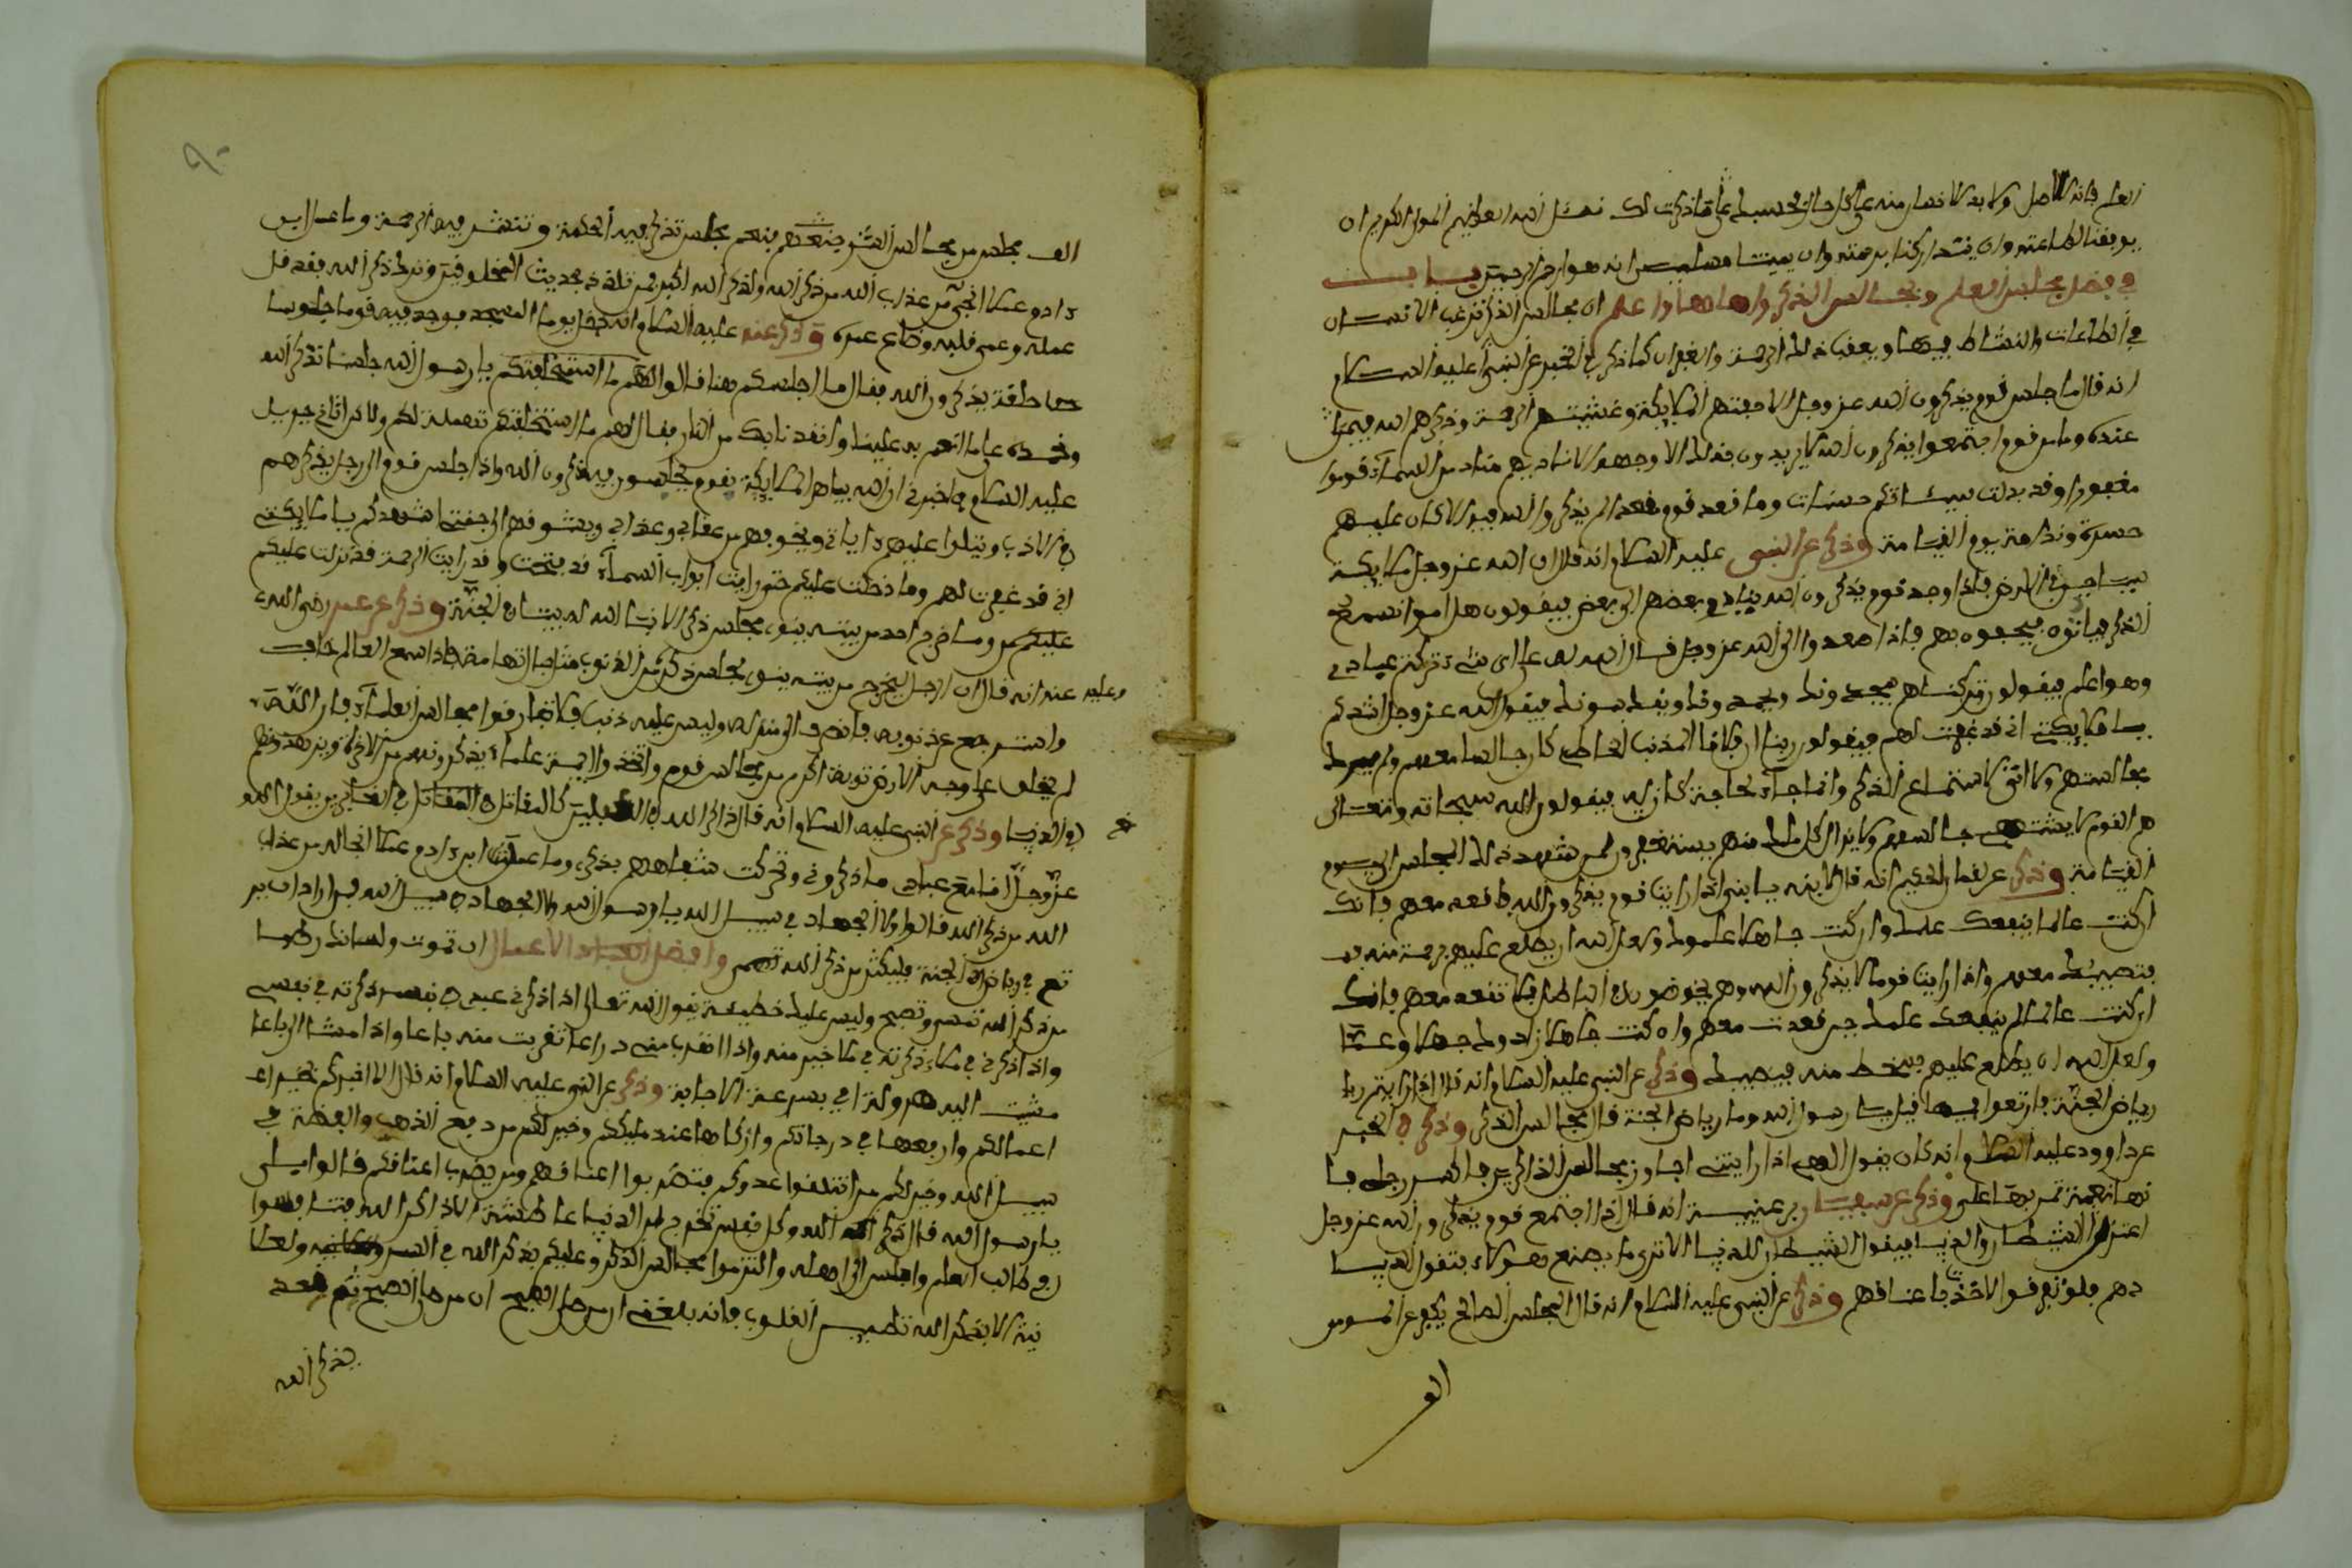 العلم فانه لاصل ولا بد للانسان منه على كل حال فحسبك على ما ذكرت لك نسئل الله العظيم المولى الكريم ان
يوفقنا لطاعته وان يتداركنا برحمته وان يميتنا مسلمين انه هو ارحم الرحمين باب
في فضل مجلس العلم ومجالس الذكر واهلها واعلم ان مجالس الذكر ترغب الانسان
في الطاعات والنشاط فيها ويعقب ذلك الرحمة والغفران كما ذكر في الخبر عن النبي عليه السلام
انه قال ما جلس قوم يذكرون الله عز وجل الا حفتهم الملايكة وغشيتهم الرحمة وذكرهم الله فيمن
عنده وما من قوم اجتمعوا يذكرون الله لا يريدون بذلك الا وجهه الا ناديهم مناد من السماء قوموا
مغفورا وقد بدلت سيئاتكم حسنات وما قعد قوم مقعدا لم يذكروا الله فيه الا كان عليهم
حسرة وندامة يوم القيامة وذكر عن النبي عليه السلام انه قال ان الله عز وجل ملايكة
سياحين في الارض فاذا وجد قوم يذكرون الله ينادي بعضهم الى بعض فيقولون هلموا نسمع
الذكر فياتوه فيحفوه بهم فاذا صعدوا الى الله عز وجل قال الله له على اي شيء تركتم عبادي
وهو اعلم فيقولون تركناهم يمجدونك ويحمدونك ويقدسونك فيقول الله عز وجل اشهدكم
يا ملايكتي اني قد غفرت لهم فيقولون ربنا ان فلانا المذنب الخاطي كان جالسا معهم ولم يرد
مجالستهم ولا اتى لاستماع الذكر وانما جاء لحاجة كان له فيقول الله سبحانه وتعالى
هم القوم لا يشقى جالسهم ولا يزال كل ملك منهم يستغفر لمن شهد ذلك المجلس الى يوم
القيامة وذكر عن لقمان الحكيم انه قال لابنه يا بني اذا رايت قوم يذكرون الله فاقعد معهم فانك
ان كنت عالما ينفعك علمك وان كنت جاهلا علموك ولعل الله ان يطلع عليهم برحمة منه
فتصيبك معهم واذا رايت قوما لا يذكرون الله وهم يخوضون في الباطل فلا تقعد معهم فانك
ان كنت عالما لم ينفعك علمك حين قعدت معهم وان كنت جاهلا زادوك جهلا وعما
ولعل الله ان يطلع عليهم بسخط منه فيصيبك وذكر عن النبي عليه السلام انه قال اذا رايتم
رياض الجنة فارتعوا فيها قيل يا رسول الله وما رياض الجنة قال مجالس الذكر وذكر في الخبر
عن داوود عليه السلام انه كان يقول الهي اذا رايتني اجاوز مجالس الذاكرين فاكسر رجلي فا
نها نعمة تمن بها علي وذكر عن سفيان بن عيينة انه قال اذا اجتمع قوم يذكرون الله عز وجل
اعتزل الشيطان والدنيا فيقول الشيطان للدنيا الا ترى ما يصنع هولاء فتقول الدنيا
دعهم فلو تفرقوا لاخذت باعناقهم وذكر عن النبي عليه السلام انه قال المجلس الصالح يكفر عن المومن
الف
الف مجلس من مجالس الشر فنعم مجلس تذكر فيه الحكمة وتنتشر فيه الرحمة وما عمل ابن
ءادم عملا انجى من عذاب الله من ذكر الله ولذكر الله اكبر فمن تلذذ بحديث المخلوقين وترك ذكر الله فقد قل
عمله وعمي قلبه وضاع عمره وذكر عنه عليه السلام انه دخل يوما المسجد فوجد فيه قوما جلوسا
حلقة يذكرون الله فقال ما اجلسكم هنا قالوا اللهم ما استحلفتكم يا رسول الله جلسنا نذكر الله
ونحمده على ما انعم به علينا وانقذنا بك من النار فقال لهم ما استحلفتكم تهمة لكم ولاكن اتاني جبريل
عليه السلام فاخبرني ان الله يباهي الملايكة بقوم يجلسون فيذكرون الله واذا جلس قوم الى رجل يذكرهم
ويتلوا عليهم ءاياتي ويخوفهم من عقابي وعذابي ويشوقهم الى جنتي اشهدكم يا ملايكتي
اني قد غفرت لهم وما دخلت عليكم حتى رايت ابواب السماء قد فتحت وقد رايت الرحمة قد نزلت عليكم
وما خرج احد من بيته ينوي مجلس ذكر الا بنا الله له بيتا في الجنة وذكر عن عمر رضي الله
عنه انه قال ان الرجل ليخرج من بيته ينوي مجلس ذكر وعليه من الذنوب مثل جبال تهامة فاذا سمع العالم خاف
واسترجع عن ذنوبه فانصرف الى منزله وليس عليه ذنب فلا تفارقوا مجالس العلماء فان الله
لم يخلق على وجه الارض تربة اكرم من مجالس قوم واتخذوا ايمة علماء يذكرونهم من الاخرة ويزهدونهم
في الدنيا وذكر عن النبي عليه السلام انه قال الذاكر الله في الغافلين كالمقاتل في الفارين يقول الله
عز وجل انا مع عبدي ما ذكرني وتحركت شفتاهم بذكري وما عمل ابن ءادم عملا انجا له من عذاب
الله من ذكر الله قالوا ولا الجهاد في سبيل الله يا رسول الله ولا الجهاد في سبيل الله فمن اراد ان ير
تع في رياض الجنة فليكثر من ذكر الله وافضل الاعمال ان تموت ولسانك رطبا
من ذكر الله تمسي وتصبح وليس عليك خطيئة يقول الله تعالى اذا ذكرني عبدي في نفسه ذكرته في نفسي
واذا ذكرني في ملاء ذكرته في ملا خير منه واذا اتقرب مني ذراعا تقربت منه باعا واذا مشا الي باعا
مشيت اليه هرولة اي بسرعة الاجابة وذكر عن النبي عليه السلام انه قال الا اخبركم بخير
اعمالكم وارفعها في درجاتكم وازكاها عند مليككم وخير لكم من دفع الذهب والفضة في
سبيل الله وخير لكم من ان تلقوا عدوكم فتضربوا اعناقهم ومن يضرب اعناقكم قالوا بلى
يا رسول الله قال ذكر الله وكل نفس تخرج من الدنيا عاطشة الا ذاكر الله
طالب العلم واجلس الى اهله والتزموا مجالس الذكر وعليكم بذكر الله في السر والعلانية
الا بذكر الله تطمين القلوب فانه بلغني ان من صلى الصبح ثم قعد
يذكر الله